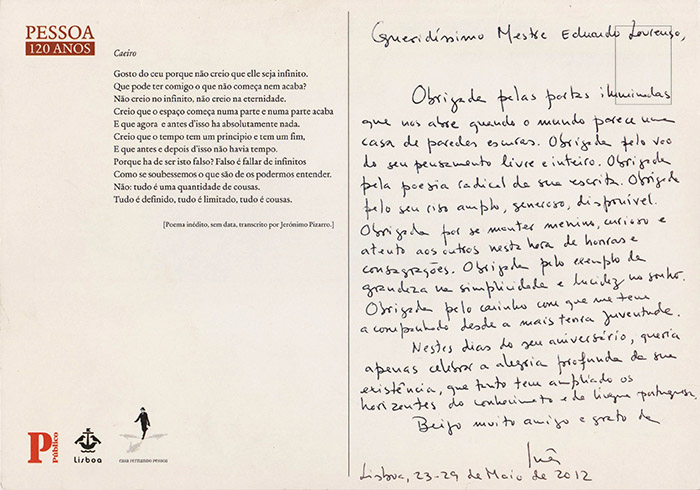 PESSOA
120 ANOS
Caeiro
Gosto do ceu porque não creio que elle seja infinito.
Que pode ter comigo o que não começa nem acaba?
Não creio no infinito, não creio na eternidade.
Creio que o espaço começa numa parte e numa parte acaba
E que agora e antes d'isso ha absolutamente nada.
Creio que o tempo tem um principio e tem um fim,
E que antes e depois d'isso não havia tempo.
Porque ha de ser isto falso? Falso é fallar de infinitos
Como se soubessemos o que são de os podermos entender.
Não: tudo é uma quantidade de cousas.
Tudo é definido, tudo é limitado, tudo é cousas.
[Poema inédito, sem data, transcrito por Jerónimo Pizarro.]
P
Público
Lisboa
casa fernando pessoa
Queridíssimo Mestre Eduardo Lourenço,
Obrigada pelas portas iluminadas
que nos abre quando o mundo parece uma
casa de paredes escuras. Obrigada pelo voo
do seu pensamento livre e inteiro. Obrigada
pela poesia radical da sua escrita. Obrigada
pelo seu riso amplo, generoso, disponível.
Obrigada por se manter menino, curioso e
atento aos outros nesta hora de honras e
consagrações. Obrigada pelo exemplo de
grandeza na simplicidade e lucidez no sonho.
Obrigada pelo carinho com que me tem
acompanhado desde a mais tenra juventude.
Nestes dias do seu aniversário, queria
apenas celebrar a alegria profunda da sua
existência, que tanto tem ampliado os
horizontes do conhecimento e da língua portuguesa.
Beijo muito amigo e grato da
Inês
Lisboa, 23-29 de Maio de 2012